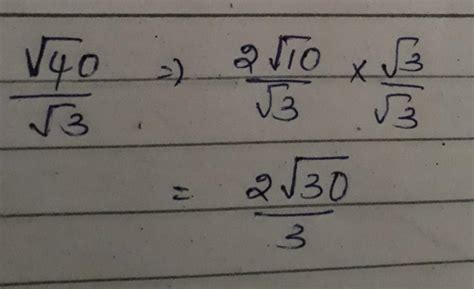 √40/√3 ⇒ 2√10/√3 × √3/√3
= 2√30/3